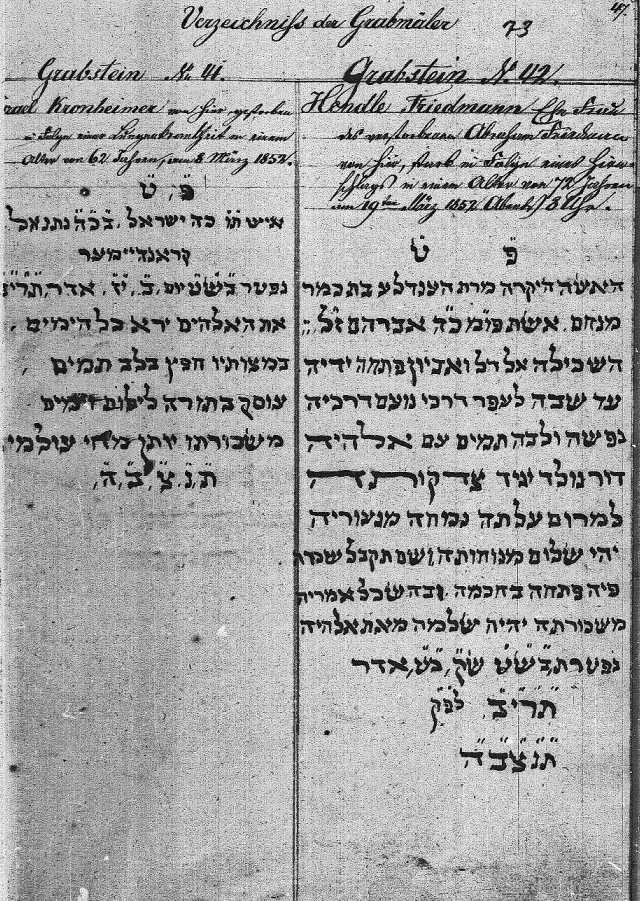 47.
Verzeichniss der Grabmäler
23
Grabstein No 41.
Kronheimer von hier gestorben
in Folge einer Lungenkrankheit in einem
Alter von 62 Jahren, am 8 März 1852.
פ״ ט״
איש תו כה ישראל, בכ״ה נתנאל
קראנהיימער
נפטר בש״ט יום, ב׳, י״ז, אדר,
את האלהים ירא כל הימים,
במצותיו חפץ בלב תמים
עוסק בתורה
משכורתו יותן
ת׳, נ׳, צ׳, ב׳, ה׳,
Grabstein No 42.
Hendle Friedmann Ehefrau
des verstorbenen Abraham Friedmann
von hier, starb in Folge eines
in einem Alter von 72 Jahren
am 19ten März 1852 Abends 8 Uhr.
פ״ ט״
האשה היקרה מרת הענדלע בת כמר
מנחם, אשת פו״מ כ״ה אברהם ז״ל,
השכילה אל דל ואביון פתחה ידיה
עד שבה לעפר דרכי נועם דרכיה
נפשה ולבה תמים עם אלהיה
דור נולד יגיד
למרום עלתה נמחה מנעוריה
יהי שלום מנוחותה ושם תקבל
פיה פתחה בחכמה ובה שכל אמריה
משכורתה יהיה שלמה מאת אלהיה
נפטרת, בש״ט אדר
תרי״ב לפ״ק
ת׳נ׳צ׳ב׳ה׳